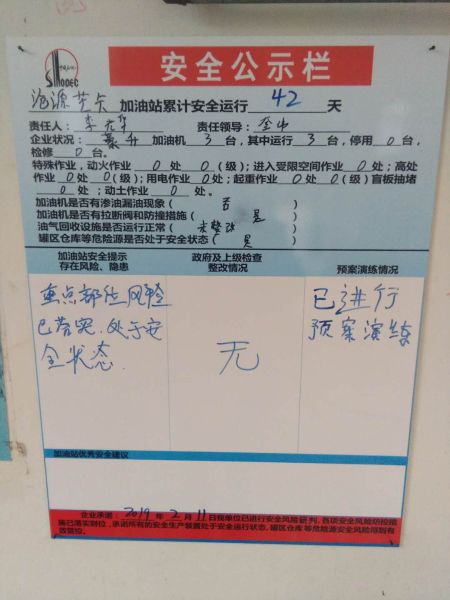 中国石化
SINOPEC
安全公示栏
加油站累计安全运行 42 天
责任人： 责任领导：
企业状况： 加油机 3 台，其中运行 3 台，停用 0 台，
检修 0 台。
特殊作业，动火作业 0 处 0（级）；进入受限空间作业 0 处；高处
作业 0 处 0（级）；用电作业 0 处；起重作业 0 处 0（级）盲板抽堵
0 处；动土作业 0 处。
加油机是否有渗油漏油现象（ 否 ）
加油机是否有拉断阀和防撞措施（ 是 ）
油气回收设施是否运行正常（ 未整改 ）
罐区仓库等危险源是否处于安全状态（ 是 ）
加油站安全提示
存在风险、隐患
政府及上级检查
整改情况
预案演练情况
重点部位风险
已落实，处于安
全状态.
无
已进行
预案演练
加油站优秀安全建议
企业承诺：2019 年 2 月 11 日我单位已进行安全风险研判，各项安全风险防控措
施已落实到位，承诺所有的安全生产装置处于安全运行状态，罐区仓库等危险源安全风险得到有
效管控。